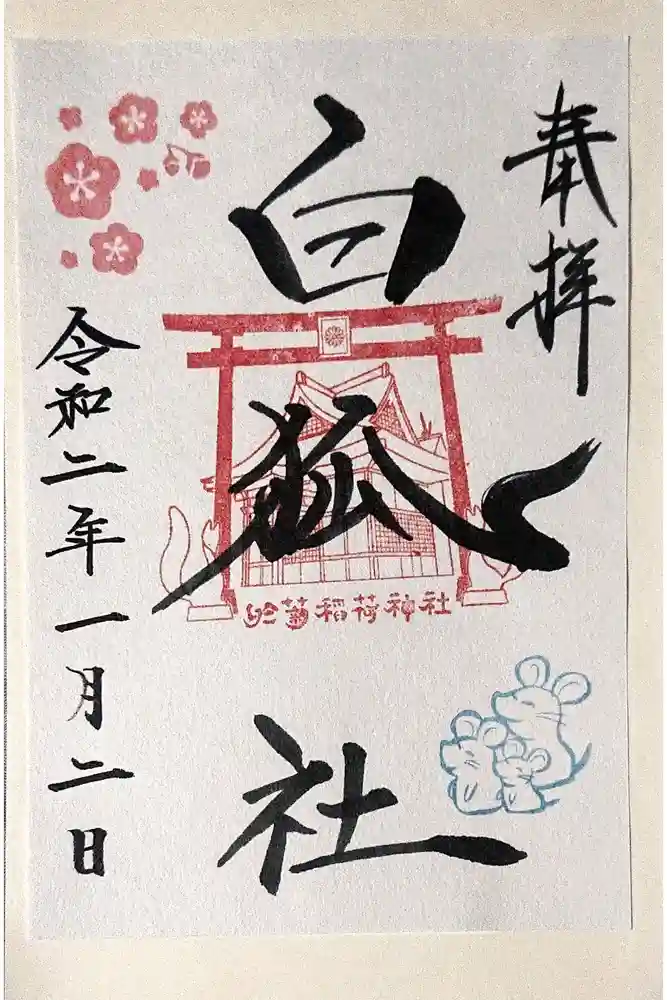 奉拝
白狐社
於菊稲荷神社
令和二年一月二日